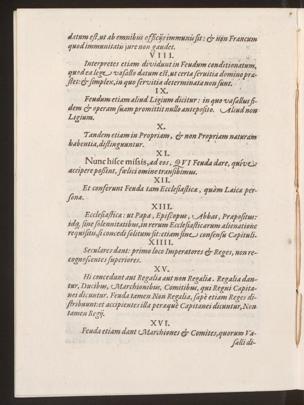 datum est, ut ab omnibus officijs immunis sit: & non Francum
quod immunitatis jure non gaudet.
VIII.
Interpretes etiam dividunt in Feudum conditionatum,
quod ea lege vasallo datum est, ut certa servitia domino præ-
stet: & simplex, in quo servitia determinata non sunt.
IX.
Feudum etiam aliud Ligium dicitur: in quo vasallus fi-
dem & operam suam promittit nullo anteposito. Aliud non
Ligium.
X.
Tandem etiam in Propriam, & non Propriam naturam
habentia, distinguuntur.
XI.
Nunc hisce missis, ad eos, QVI Feuda dare, quíve
accipere possint, fœlici omine transibimus.
XII.
Et conferunt Feuda tam Ecclesiastica, quàm Laica per-
sona.
XIII.
Ecclesiastica: ut Papa, Episcopus, Abbas, Præpositus:
idq́ sine solennitatibus, in rerum Ecclesiasticarum alienatione
requisitis, si concedi solitum sit: etiam sine consensu Capituli.
XIIII.
Seculares dant: primo loco Imperatores & Reges, non re-
cognoscentes superiores.
XV.
Hi concedunt aut Regalia aut non Regalia. Regalia dan-
tur, Ducibus, Marchionibus, Comitibus, qui Regni Capita-
nei dicuntur. Feuda tamen Non Regalia, sæpè etiam Reges di-
stribuunt: et accipientes illa peræquè Capitanei dicuntur, Non
tamen Regij.
XVI.
Feuda etiam dant Marchiones & Comites, quorum Va-
salli di-